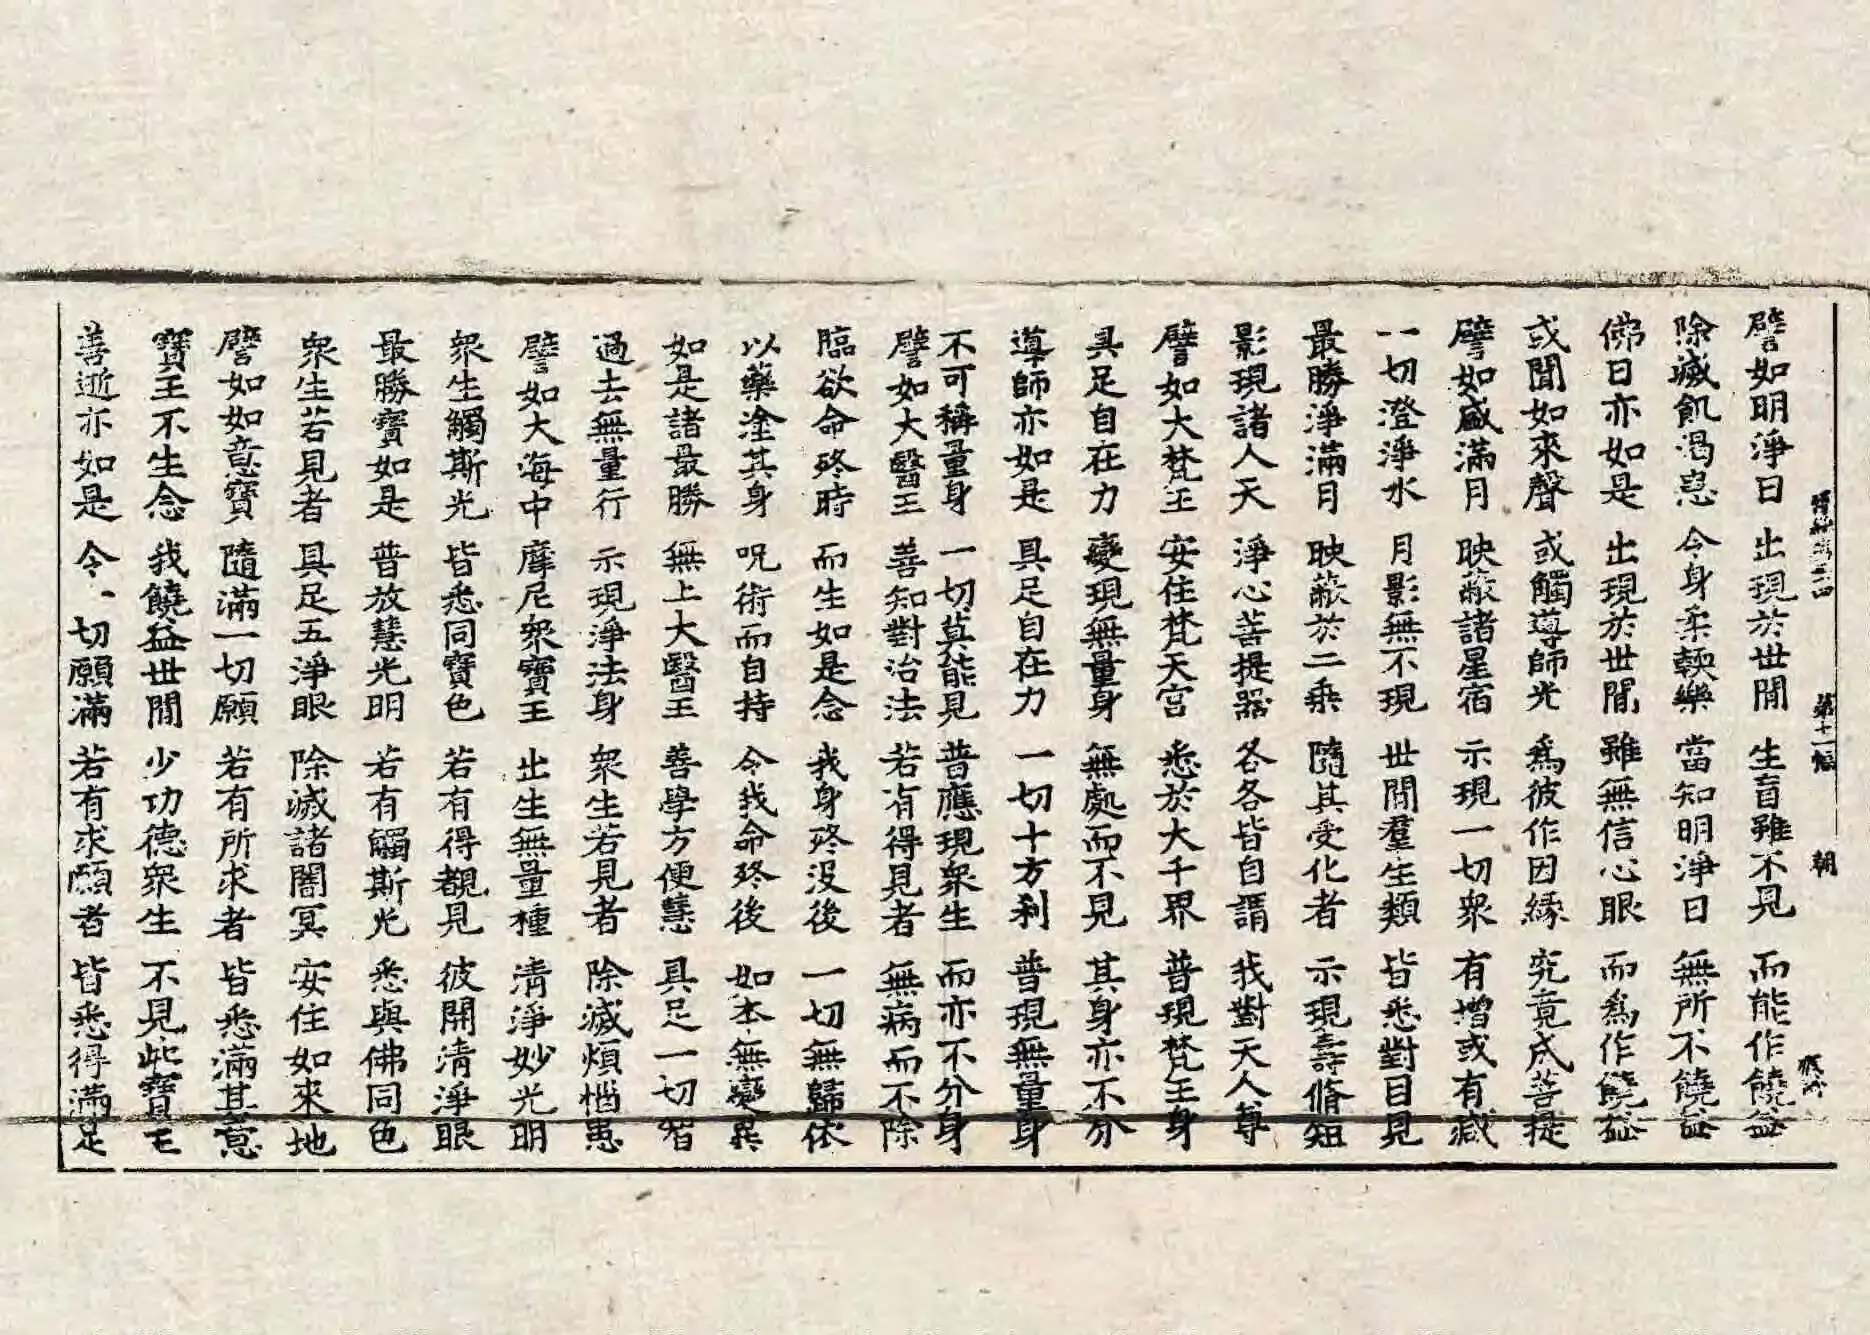 譬如明淨日 出現於世閒 生盲雖不見 而能作饒益
除滅飢渴惡 令身柔輭樂 當知明淨日 無所不饒益
佛日亦如是 出現於世閒 雖無信心眼 而為作饒益
或聞如來聲 或觸導師光 為彼作因緣 究竟成菩提
譬如盛滿月 映蔽諸星宿 示現一切衆 有增或有減
一切澄淨水 月影無不現 世間羣生類 皆悉對目見
最勝淨滿月 映蔽於二乘 隨其受化者 示現壽脩短
影現諸人天 淨心菩提器 各各皆自謂 我對天人尊
譬如大梵王 安住梵天宮 悉於大千界 普現梵王身
具足自在力 變現無量身 無處而不見 其身亦不分
導師亦如是 具足自在力 一切十方利 普現無量身
不可稱量身 一切莫能見 普應現衆生 而亦不分身
譬如大醫王 善知對治法 若有得見者 無病而不除
臨欲命終時 而生如是念 我身終没後 一切無歸依
以藥塗其身 呪術而自持 令我命終後 如本無變異
如是諸最勝 無上大醫王 善學方便慧 具足一切智
過去無量行 示現淨法身 衆生若見者 除滅煩惱患
譬如大海中 摩尼衆寶王 出生無量種 清淨妙光明
衆生觸斯光 皆悉同寶色 若有得覩見 彼開清淨眼
最勝寶如是 普放慧光明 若有觸斯光 悉與佛同色
衆生若見者 具足五淨眼 除滅諸闇冥 安住如來地
譬如如意寶 隨滿一切願 若有所求者 皆悉滿其意
寶王不生念 我饒益世間 少功德衆生 不見此寶王
善逝亦如是 令一切願滿 若有求願者 皆悉得滿足
第十一幅 朝